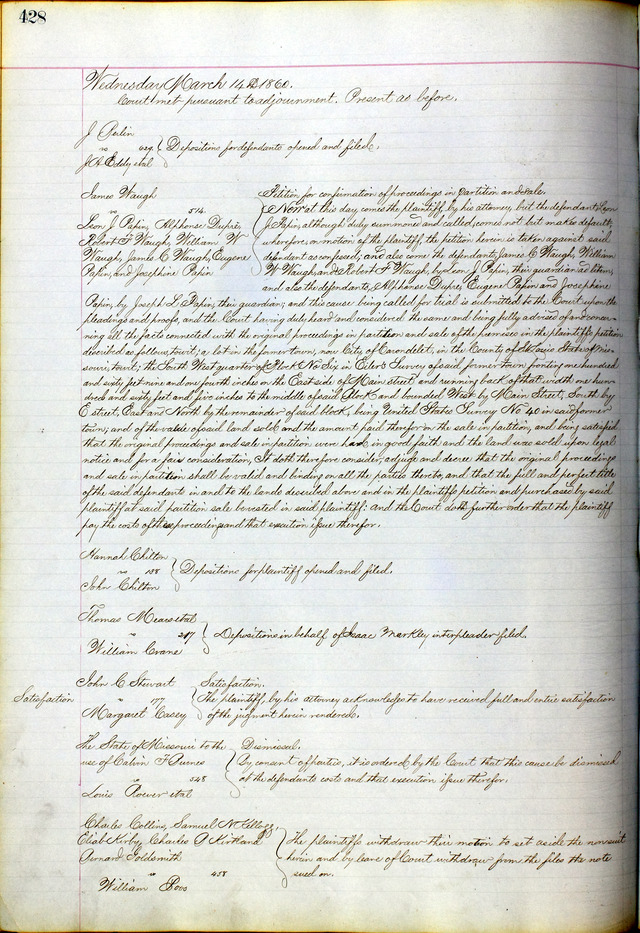 428
Wednesday March 14th 1860.
Court met pursuant to adjournment. Present as before.
J Perlin
vs 629 Depositions for defendants opened and filed.
J A Eddy et al
James Waugh
vs 514
Leon J. Papin, Alphonse Dupre,
Robert F Waugh, William W
Waugh, James C Waugh, Eugene
Papin, and Josephine Papin
Petition for confirmation of proceedings in Partition and sale.
Now at this day comes the plaintiff, by his attorney, but the defendant Leon
J. Papin, although duly summoned and called, comes not but makes default;
wherefore, on motion of the plaintiff, the petition herein is taken against said
defendant as confessed; and also come the defendants, James C. Waugh, William
W Waugh, and Robert F Waugh, by Leon J. Papin, their guardian ad litem,
and also the defendants, Alphonse Dupre, Eugene Papin and Josephine
Papin, by Joseph L. Papin, their guardian; and this cause being called for trial is submitted to the Court upon the
pleadings and proofs, and the Court having duly heard and considered the same and being fully advised of and concer-
ning all the facts connected with the original proceedings in partition and sale of the premises in the plaintiff's petition
described as follows, towit; a lot in the former town, now City of Carondelet, in the County of St. Louis State of Mis-
souri, towit; the South West quarter of Block No Six in Eiler's Survey of said former town fronting one hundred
and sixty feet nine and one fourth inches on the East side of Main street and running back of that width one hun-
dred and sixty feet and five inches to the middle of said Block and bounded West by Main Street, South by
E street, East and North by the remainder of said block, being United States Survey No 40 in said former
town; and of the value of said land sold and the amount paid therefor on the sale in partition, and being satisfied
that the original proceedings and sale in partition were had in good faith and the land was sold upon legal
notice and for a fair consideration, It doth therefore consider, adjudge and decree that the original proceedings
and sale in partition shall be valid and binding on all the parties thereto, and that the full and perfect title
of the said defendants in and to the lands described above and in the plaintiff's petition and purchased by said
plaintiff at said partition sale be vested in said plaintiff: And the Court doth further order that the plaintiff
pay the costs of these proceedings and that execution issue therefor.
Hannah Chilton
vs 188 Depositions for plaintiff opened and filed.
John Chilton
Thomas Meaes et al
vs 247 Depositions in behalf of Isaac Markley interpleader filed.
William Crane
Satisfaction
John C Stewart
vs 177
Margaret Casey
Satisfaction.
The plaintiff, by his attorney acknowledges to have received full and entire satisfaction
of the judgment herein rendered.
The State of Missouri to the
use of Calvin F Burnes
vs 548
Louis Roever et al
Dismissal.
By consent of parties, it is ordered by the Court that this cause be dismissed
at the defendants costs and that execution issue therefor.
Charles Collins, Samuel N Kellogg
Eliab Kirby, Charles A Kirtland
Bernard Goldsmith
vs 458
William Roos
The plaintiffs withdraw their motion to set aside the nonsuit
herein and by leave of Court withdraw from the files the note
sued on.